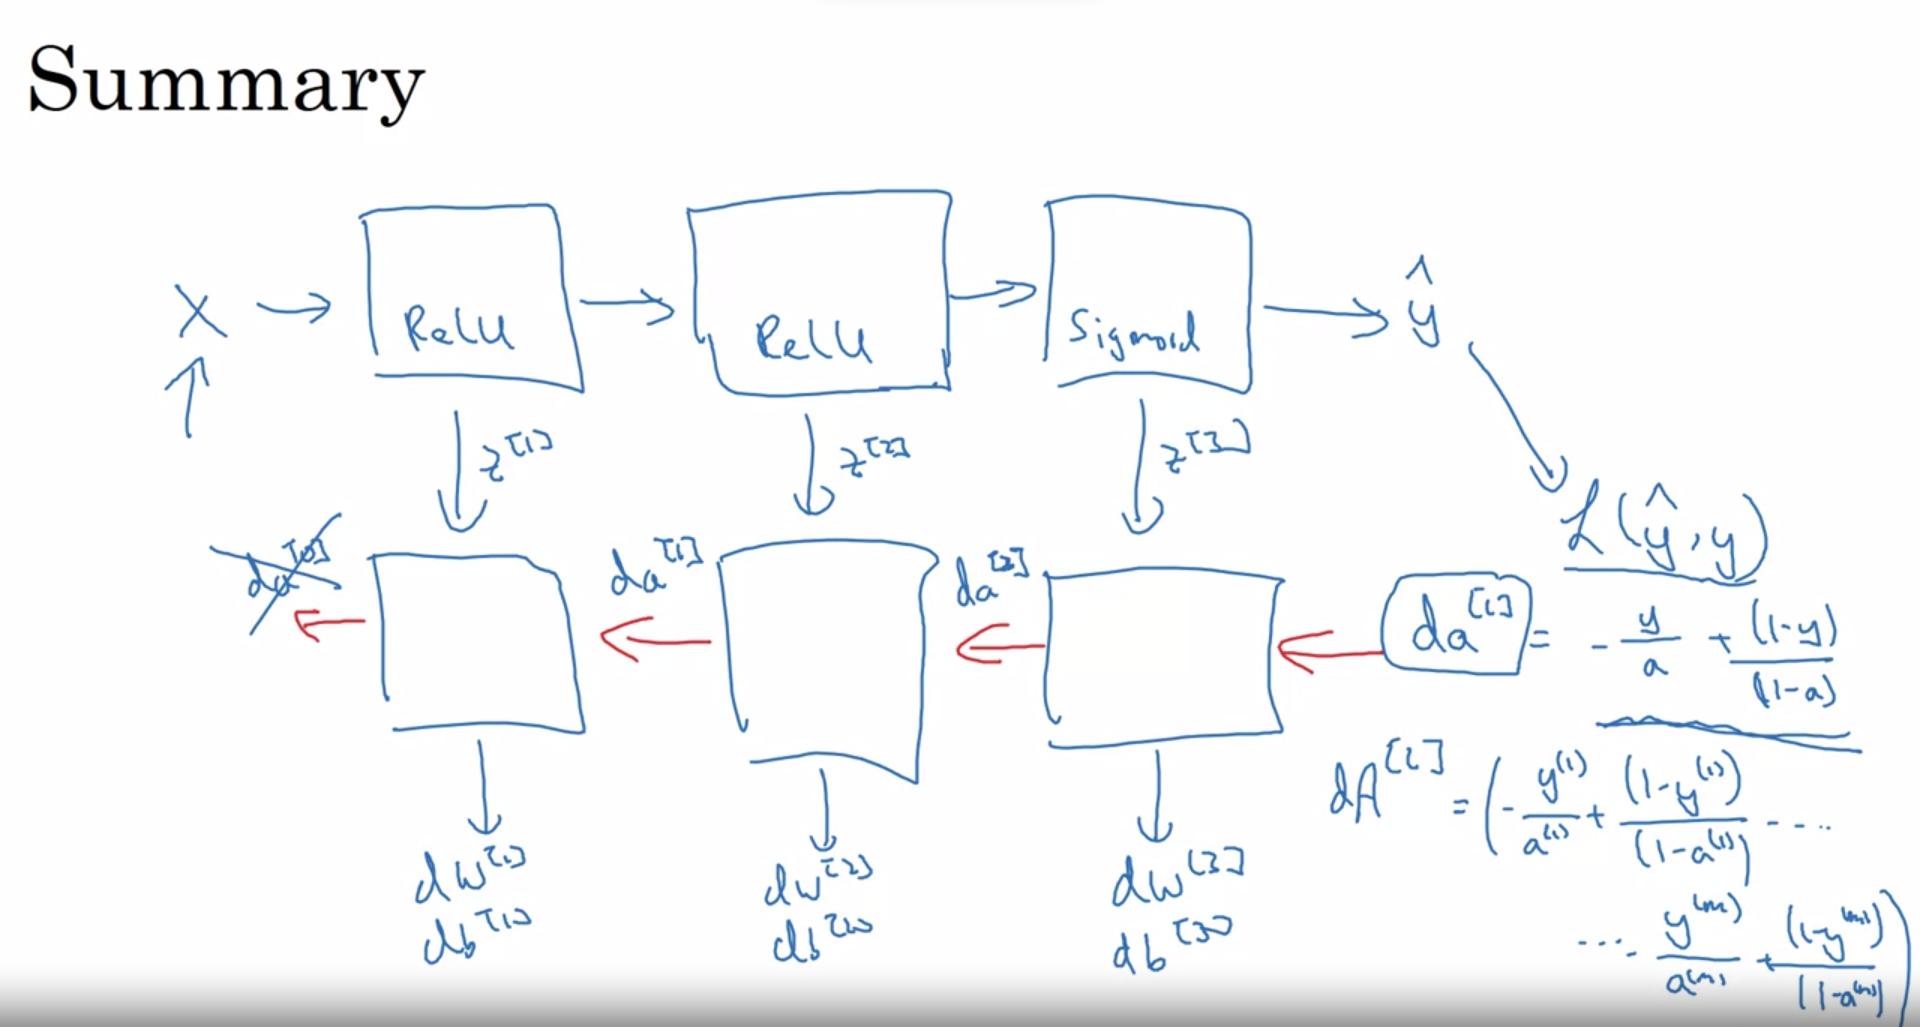 Summary
X → ReLU → ReLU → Sigmoid → ŷ
z^[1] z^[2] z^[3]
L(ŷ, y)
da^[0] da^[1] da^[2] da^[l] = - y/a + (1-y)/(1-a)
dA^[l] = (- y^(1)/a^(1) + (1-y^(1))/(1-a^(1)) ....
.... - y^(m)/a^(m) + (1-y^(m))/(1-a^(m)))
dw^[1] dw^[2] dw^[3]
db^[1] db^[2] db^[3]